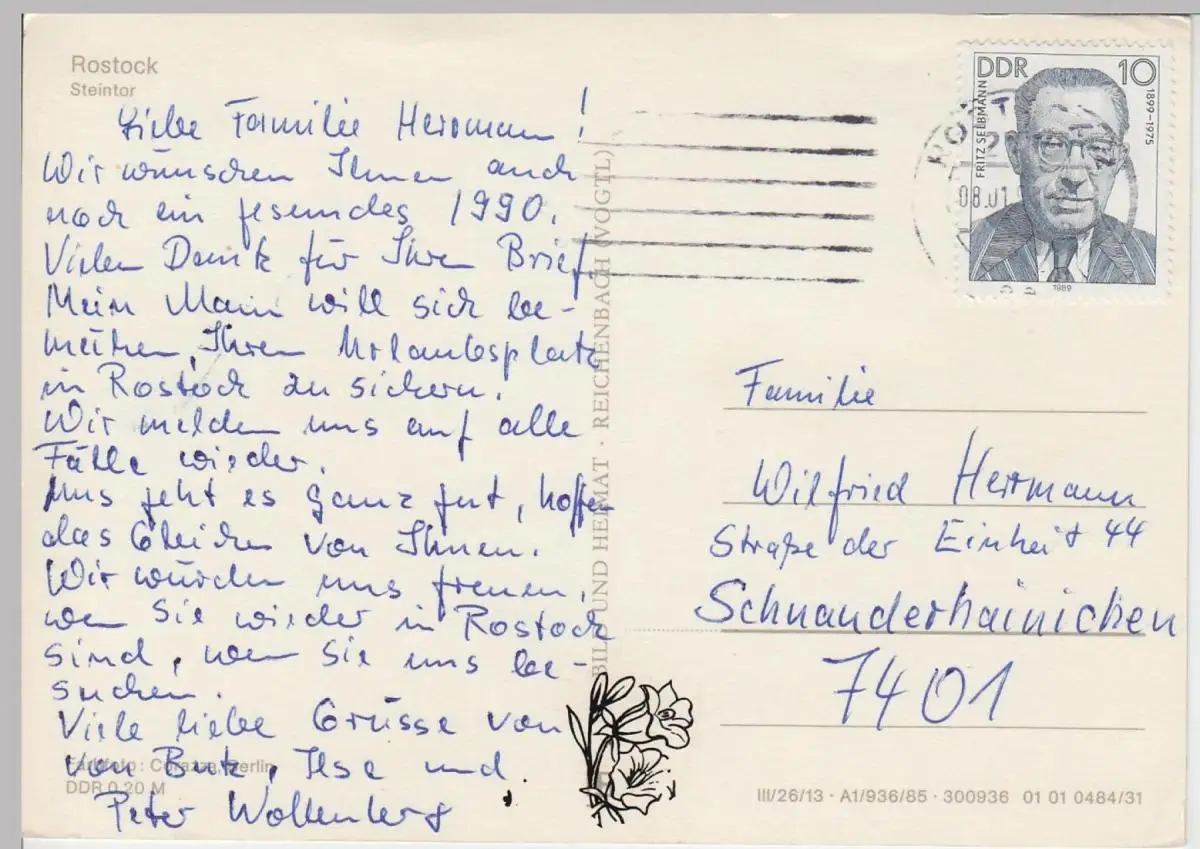 Rostock
Steintor
Liebe Familie Herrmann!
Wir wünschen Ihnen auch
noch ein gesundes 1990.
Vielen Dank für Ihren Brief.
Mein Mann will sich be-
mühen, Ihren Urlaubsplatz
in Rostock zu sichern.
Wir melden uns auf alle
Fälle wieder.
Uns geht es ganz gut, hoffen
das Gleiche von Ihnen.
Wir würden uns freuen,
wen Sie wieder in Rostock
sind, wen Sie uns be-
suchen.
Viele liebe Grüsse von
von Butz, Ilse und
Peter Wollenberg
Farbfoto: Corazza, Berlin
DDR 0,20 M
BILD UND HEIMAT · REICHENBACH (VOGTL)
DDR 10
FRITZ SELBMANN
1899-1975
1989
08.01
Familie
Wilfried Herrmann
Straße der Einheit 44
Schnanderhainichen
7401
III/26/13 · A1/936/85 · 300936 01 01 0484/31